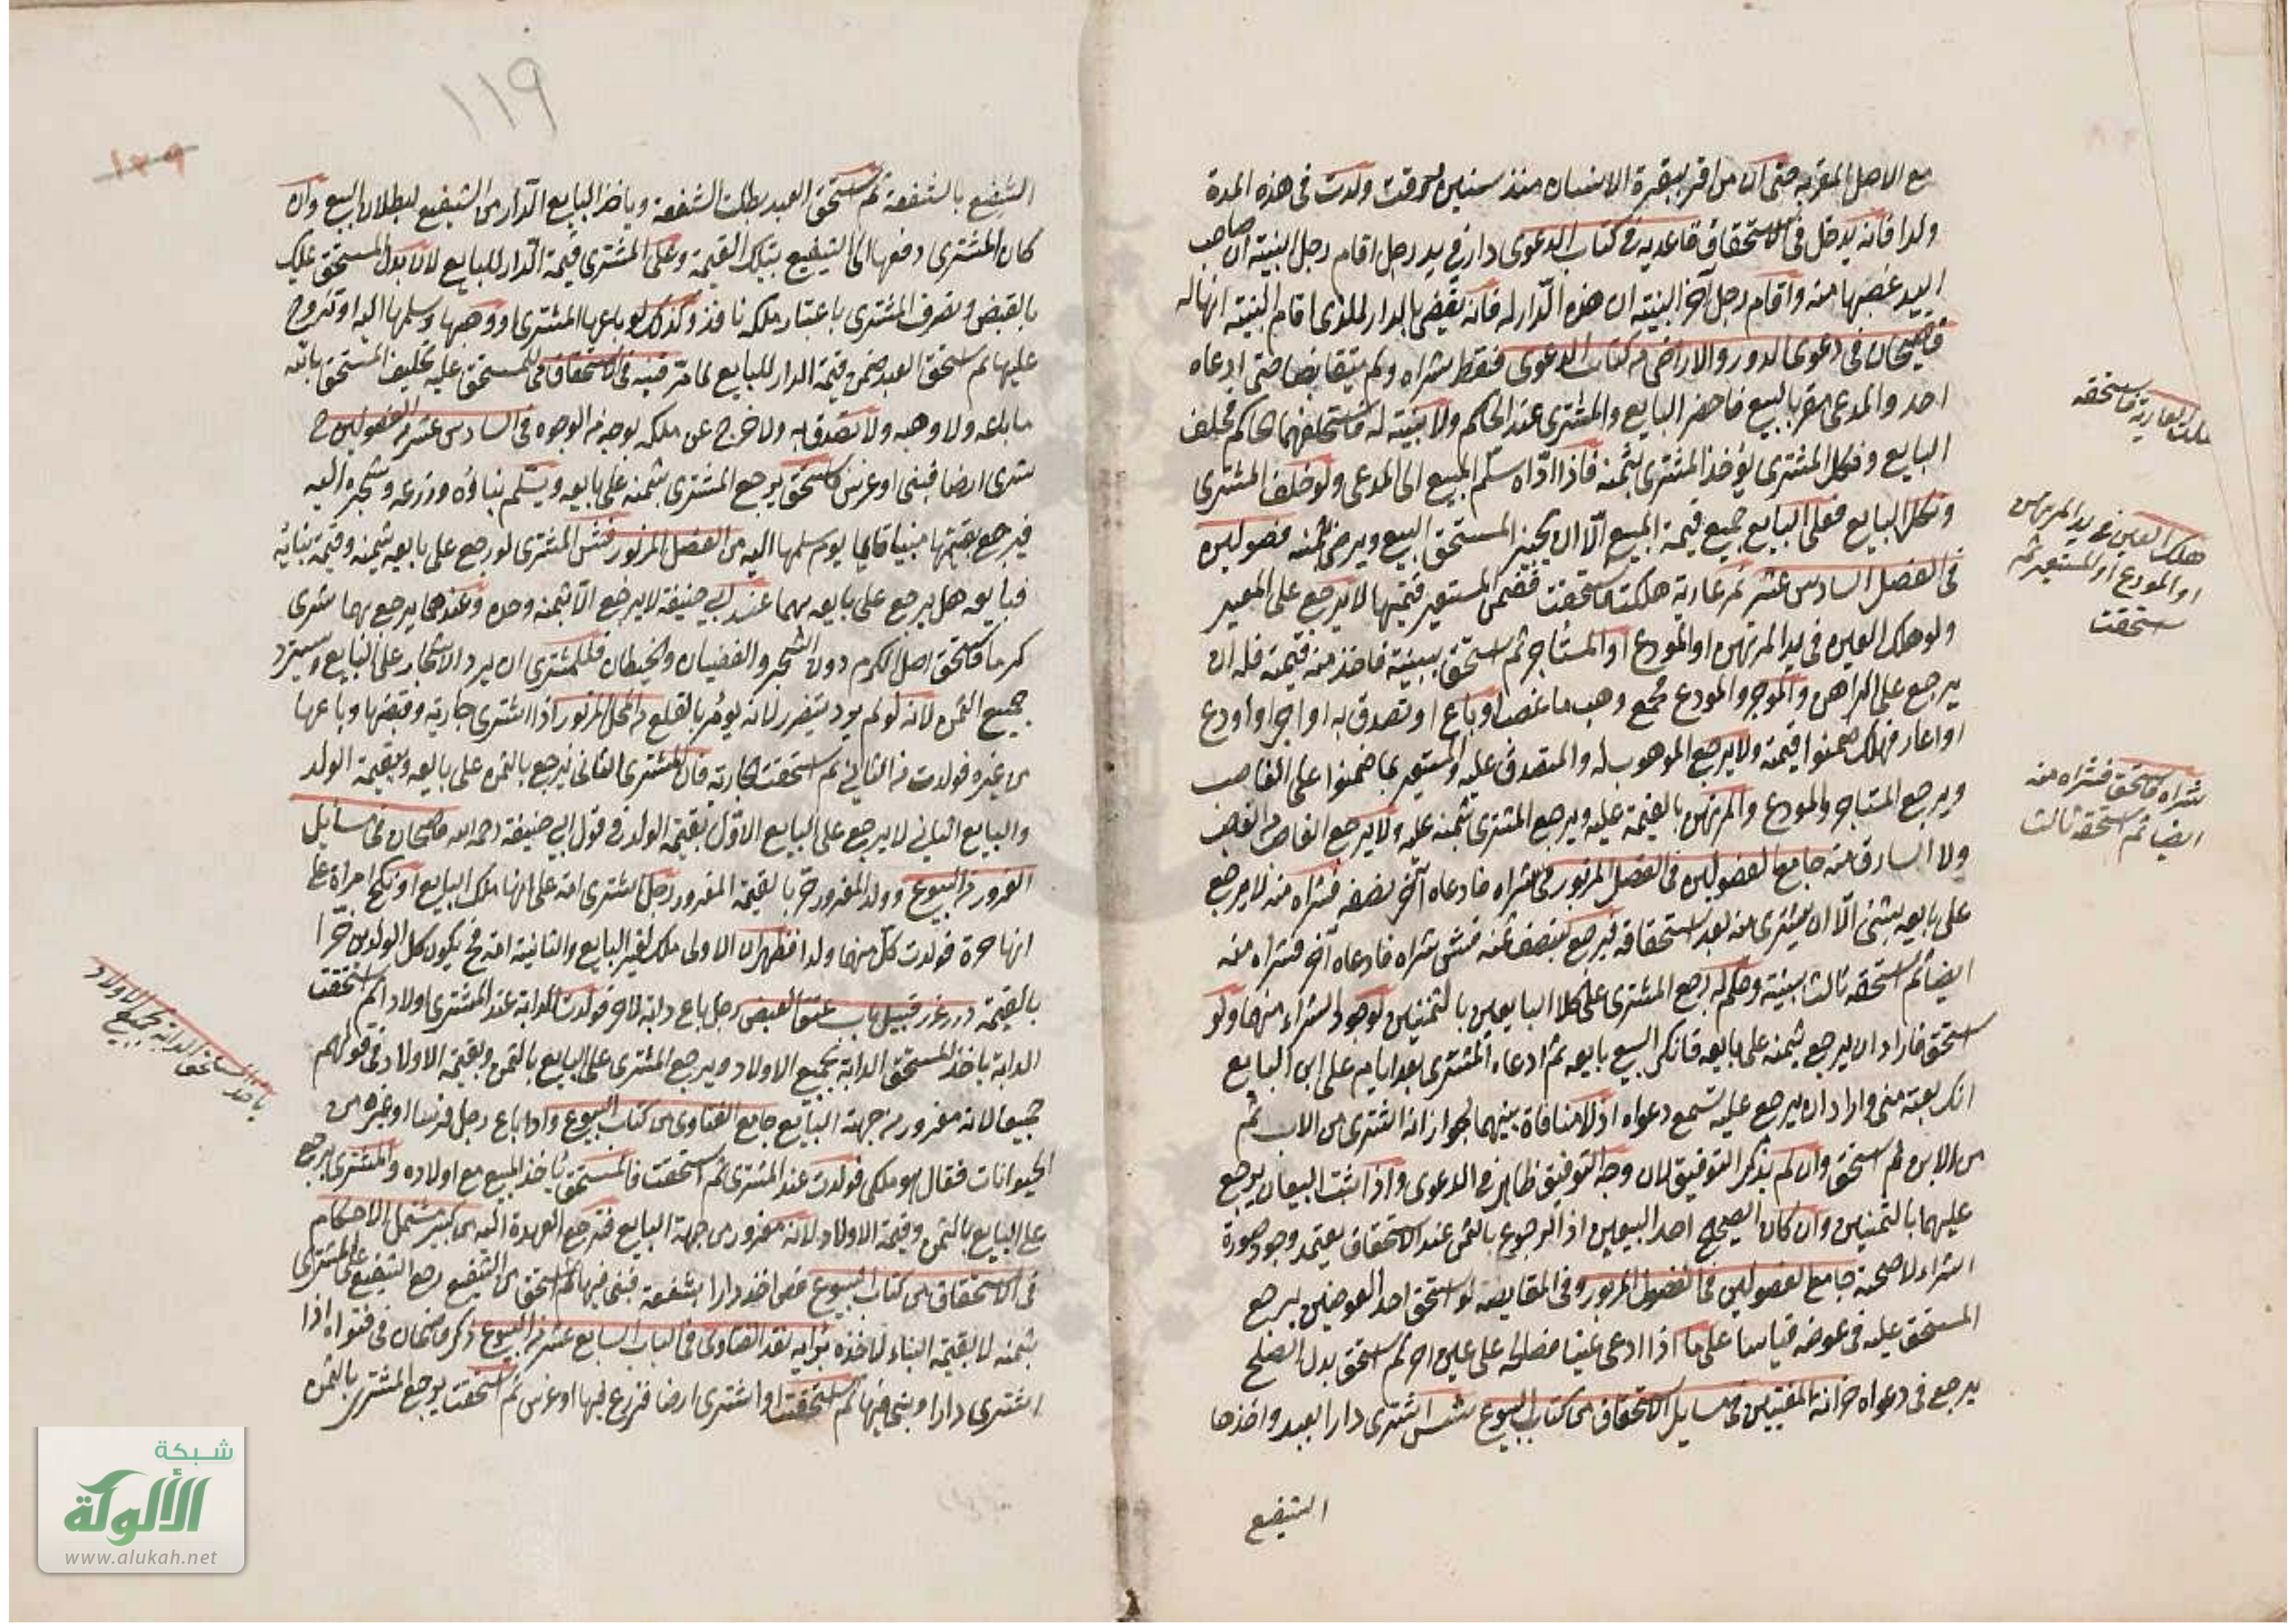 مع الاصل المقر به حتى ان من اقر ببقرة الانسان منذ سنين وقت ولدت في هذه المدة
ولدا فانه يدخل في الاستحقاق قاعديه في كتاب الدعوى دار في يد رجل اقام رجل البينة ان صاحب
اليد غصبها منه واقام رجل آخر البينة ان هذه الدار له فانه يقضى بالدار للذى اقام البينة انها له
قاضيخان في دعوى الدور والاراضى من كتاب الدعوى فقط شراه ولم يتقابضا حتى ادعاه
احد والمدعى مقر بالبيع فاحضر البايع والمشترى عند الحاكم ولا بينة له فاستحلفهما الحاكم فحلف
البايع ونكل المشترى يؤخذ المشترى بثمنه فاذا اداه سلم المبيع الى المدعى ولو حلف المشترى
ونكل البايع فعلى البايع جميع قيمة المبيع الا ان يجيز المستحق البيع ويرضى ثمنه فصولين
في الفصل السادس عشر ثم عارية هلكت فاستحقت فضمن المستعير قيمتها لا يرجع على المعير
ولو هلك العين في يد المرتهن او المودع او المستأجر ثم استحق ببينة فاخذ منه قيمته فله ان
يرجع على الراهن والموجر والمودع مجمع وهب ما غصب او باع او تصدق به او اجر او اودع
او اعار فهلك ضمنوا قيمته ولا يرجع الموهوب له والمتصدق عليه والمستعير بما ضمنوا على الغاصب
ويرجع المستاجر والمودع والمرتهن بالقيمة عليه ويرجع المشترى بثمنه عليه ولا يرجع الغاصب من الغاصب
ولا السارق منه جامع الفصولين في الفصل المزبور في شراه فادعاه آخر نصفه فشراه منه لا يرجع
على بايعه بشئ الا ان يشترى منه بعد استحقاقه فيرجع بنصف ثمنه فش شراه فادعاه آخر فشراه منه
ايضا ثم استحقه ثالث ببينة وحكم له رجع المشترى على كلا البايعين بالثمنين لوجود الشراء منهما ولو
استحق فاراد ان يرجع بثمنه على بايعه فانكر البيع بايعه ثم ادعاه المشترى بعد ايام على ابن البايع
انك بعته منى واراد ان يرجع عليه تسمع دعواه اذ لا منافاة بينهما لجواز انه اشترى من الاب ثم
من الابن ثم استحق وان لم يذكر التوفيق لان وجه التوفيق ظاهر في الدعوى واذا ثبت البيعان يرجع
عليهما بالثمنين وان كان الصحيح احد البيعين اذ الرجوع بالثمن عند الاستحقاق يعتمد وجود صورة
الشراء لا صحته جامع الفصولين في الفصول المزبور وفي المقايضة لو استحق احد العوضين يرجع
المستحق عليه في عوضه قياسا على ما اذا ادعى عينا فصالحه على عين اخر ثم استحق بدل الصلح
يرجع في دعواه خزانة المفتيين في مسايل الاستحقاق من كتاب البيوع شس اشترى دارا بعبد واخذها
الشفيع
هلكت العارية فاستحقه
هلك العين في يد المرتهن
او المودع او المستعير ثم
استحقت
شراه فاستحق فشراه منه
ايضا ثم استحقه ثالث
١١٩
١٢٩
الشفيع بالشفعة ثم استحق العبد بطلت الشفعة وياخذ البايع الدار من الشفيع لبطلان البيع وان
كان المشترى دفعها الى الشفيع بتلك القيمة وعلى المشترى قيمة الدار للبايع لان بدل المستحق يملك
بالقبض وتصرف المشترى باعتبار ملكه نافذ وكذلك لو باعها المشترى او وهبها وسلمها اليه او تزوج
عليها ثم استحق العبد ضمن قيمة الدار للبايع لما مر قنيه في الاستحقاق في المستحق عليه تحليف المستحق بالله
ما باعه ولا وهبه ولا تصدق به ولا خرج عن ملكه بوجه من الوجوه في السادس عشر من الفصولين خ
شرى ارضا فبنى او غرس فاستحق يرجع المشترى بثمنه على بايعه ويسلم بناؤه وزرعه وشجره اليه
فيرجع بقيمتها مبنيا قايما يوم سلمها اليه من الفصل المزبور فش المشترى لو رجع على بايعه بثمنه وقيمة بنائه
فبايعه هل يرجع على بايعه بهما عند ابي حنيفة لا يرجع الا بثمنه وحده وعندهما يرجع بهما شرى
كرما فاستحق اصل الكرم دون الشجر والقضبان والحيطان فللمشترى ان يرد الاشجار على البايع ويسترد
جميع الثمن لانه لو لم يرد يتضرر لانه يؤمر بالقلع من المحل المزبور اذا اشترى جارية وقبضها وباعها
من غيره فولدت من الثاني ثم استحقت الجارية فان المشترى الثاني يرجع بالثمن على بايعه وبقيمة الولد
والبايع الثاني لا يرجع على البايع الاول بقيمة الولد في قول ابي حنيفة رحمه الله قاضيخان في مسايل
الغرور من البيوع وولد المغرور حر بالقيمة المغرور رجل اشترى امة على انها ملك البايع او نكح امراة على
انها حرة فولدت كل منهما ولدا فظهر ان الاولى ملك لغير البايع والثانية امة فح يكون كل الولدين حرا
بالقيمة درر غرر قبيل باب عتق البعض رجل باع دابة لاخر فولدت الدابة عند المشترى اولادا ثم استحقت
الدابة ياخذ المستحق الدابة بجميع الاولاد ويرجع المشترى على البايع بالثمن وبقيمة الاولاد في قولهم
جميعا لانه مغرور من جهة البايع جامع الفتاوى من كتاب البيوع واذا باع رجل فرسا او غيره من
الحيوانات فقال هو ملكى فولدت عند المشترى ثم استحقت فالمستحق ياخذ المبيع مع اولاده والمشترى يرجع
على البايع بالثمن وقيمة الاولاد لانه مغرور من جهة البايع فترجع العهدة اليه من كبير مشتمل الاحكام
في الاستحقاق من كتاب البيوع فص اخذ دارا بشفعة فبنى فيها ثم استحق من الشفيع رجع الشفيع على المشترى
بثمنه لا بقيمة البناء لاخذه برايه نقد الفتاوى في الباب السابع عشر من البيوع ذكر قاضيخان في فتواه اذا
اشترى دارا وبنى فيها ثم استحقت او اشترى ارضا فزرع فيها او غرس ثم استحقت يرجع المشترى بالثمن
ياخذ المستحق الدابة بجميع الاولاد
شبكة
الألوكة
www.alukah.net